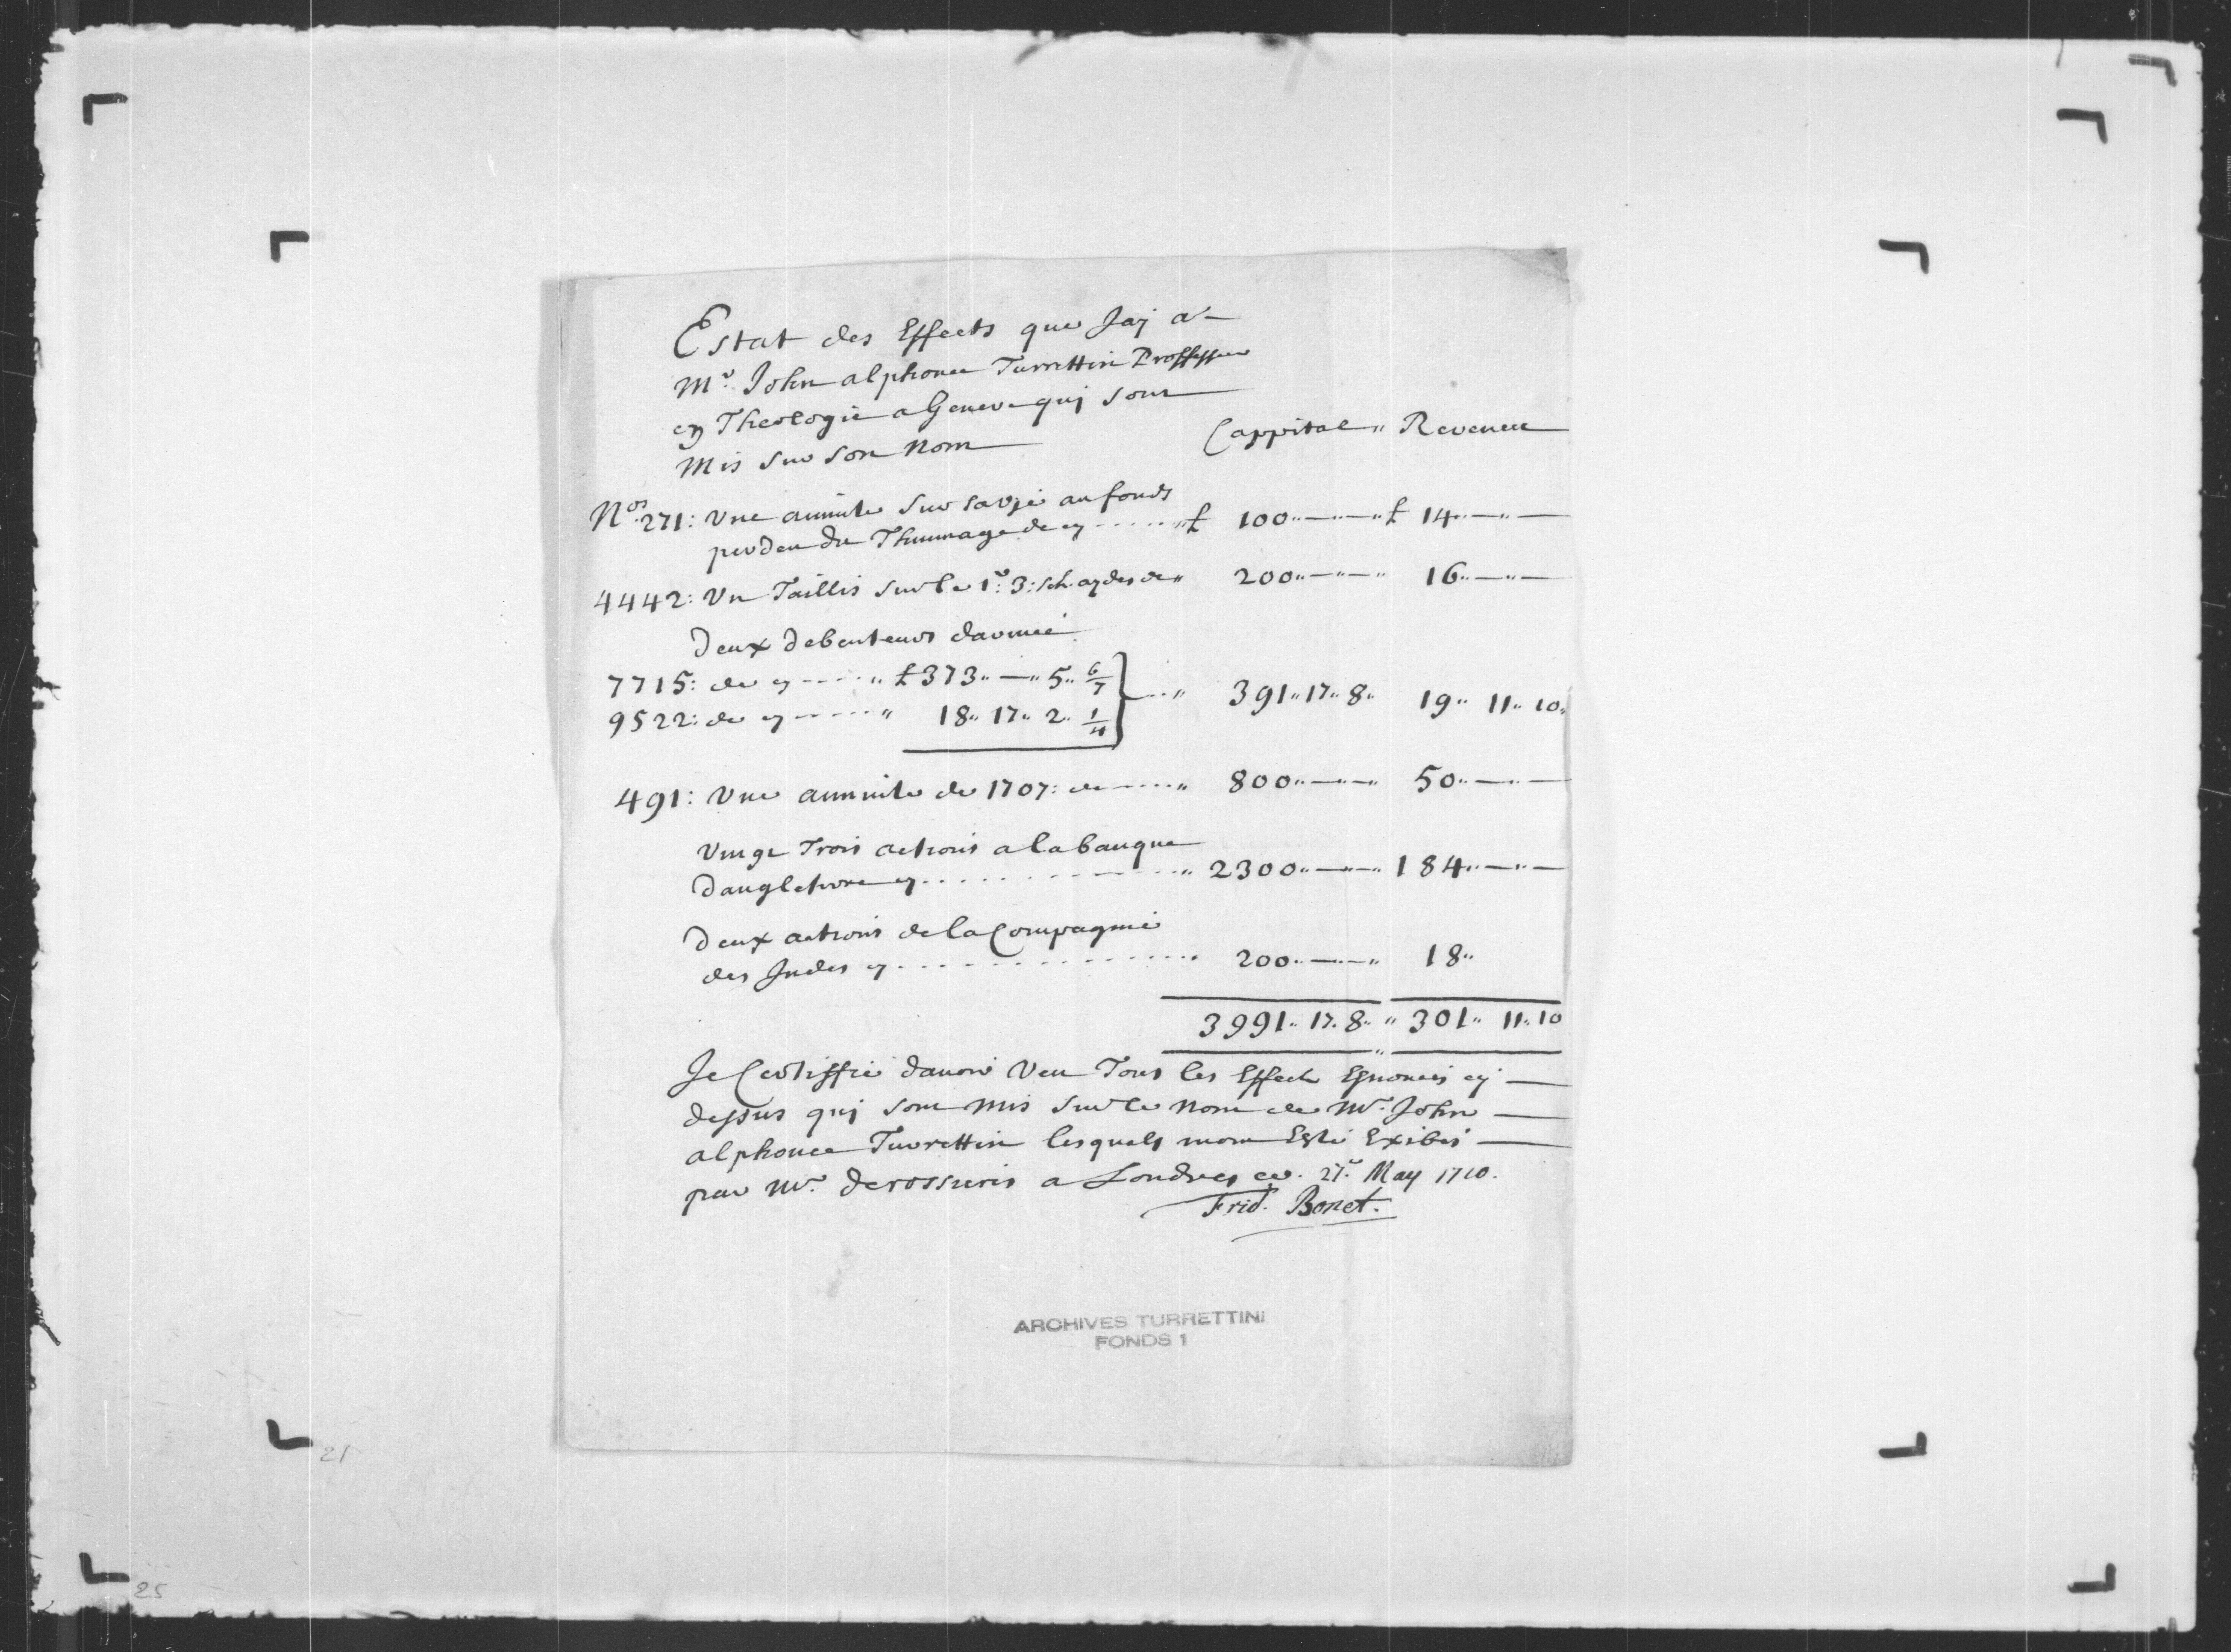 Estat des Effects que Jaj a
Mr. John alphonce Turrettin Proffesseur
en Theologie a Geneve quj sont
Mis sur son Nom
Cappital " Revenu
Nos. 271: Une annuite sur sa vie au fonds
per den du Thunnage de en £ 100 " — " — " £ 14 " — " —
4442: Un Taillis sur le 1r. 3: sch. aydes de " 200 " — " — " 16 " — " —
Deux debenteurs darmée
7715: de en " £ 373 " — " 5 " 6/7
9522: de en " 18 " 17 " 2 " 1/4 } " 391 " 17 " 8 " 19 " 11 " 10 "
491: Une annuite de 1707: de " 800 " — " — " 50 " — " —
Vingt Trois actions a la banque
dangleterre en " 2300 " — " — " 184 " — " —
Deux actions de la Compagnie
des Indes en " 200 " — " — " 18 "
3991 " 17 " 8 " " 301 " 11 " 10
Je Certiffie dauoir Veu Tous les Effects Enoncés cy
dessus quj sont mis sur le nom de Mr. John
alphonce Turrettin lesquels mont Esté Exibés
par Mr. derossieres a Londres ce. 27e. May 1710.
Frid. Bonet.
ARCHIVES TURRETTINI
FONDS 1
21
25